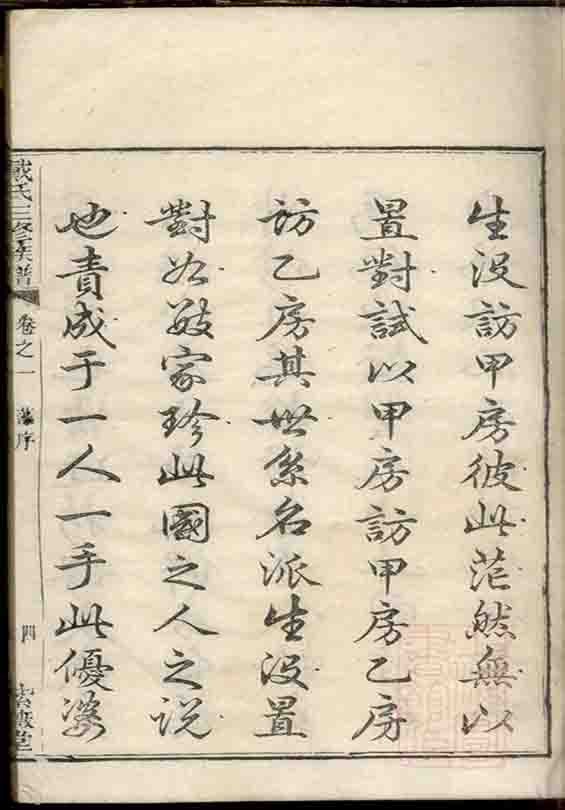 生没訪甲房彼此茫然無以
置對試以甲房訪甲房乙房
訪乙房其世系名派生没置
對如數家珍此國之人之说
也責成于一人一手此優婆
戴氏三修族譜 卷之一 譜序 四